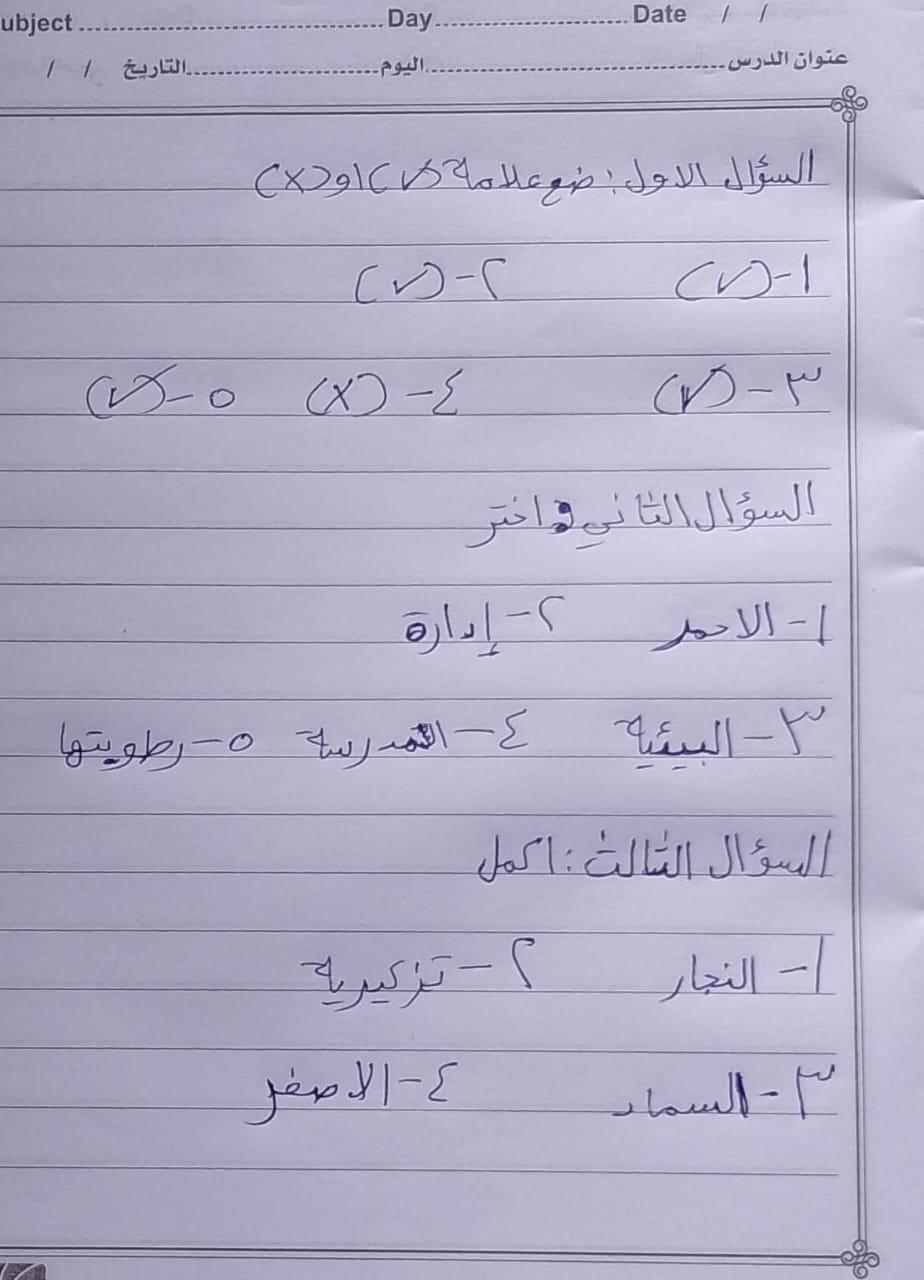 ubject ........ Day ........ Date / /
عنوان الدرس ........ اليوم ........ التاريخ / /
السؤال الاول: ضع علامة (✓) او (x)
١- (✓) ٢- (✓)
٣- (✓) ٤- (x) ٥- (✓)
السؤال الثاني: اختر
١- الاحمر ٢- إدارة
٣- البيئية ٤- المدرسة ٥- رطوبتها
السؤال الثالث: اكمل
١- النجار ٢- تزكيرية
٣- السماد ٤- الاصفر